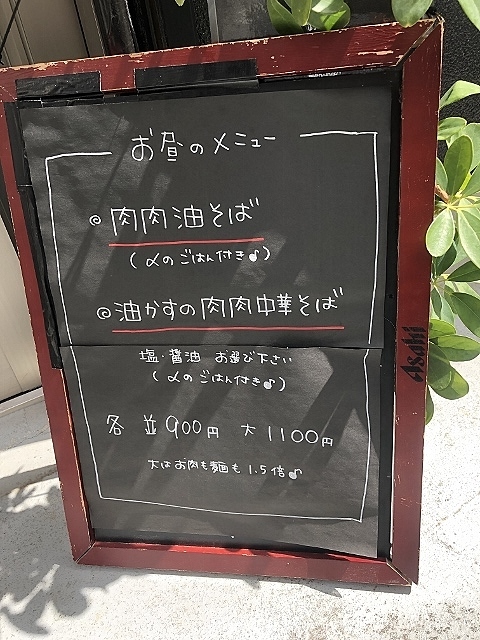 お昼のメニュー
◎肉肉油そば
(〆のごはん付き♪)
◎油かすの肉肉中華そば
塩・醤油 お選び下さい
(〆のごはん付き♪)
各 並900円 大1100円
大はお肉も麺も1.5倍♪
Asahi